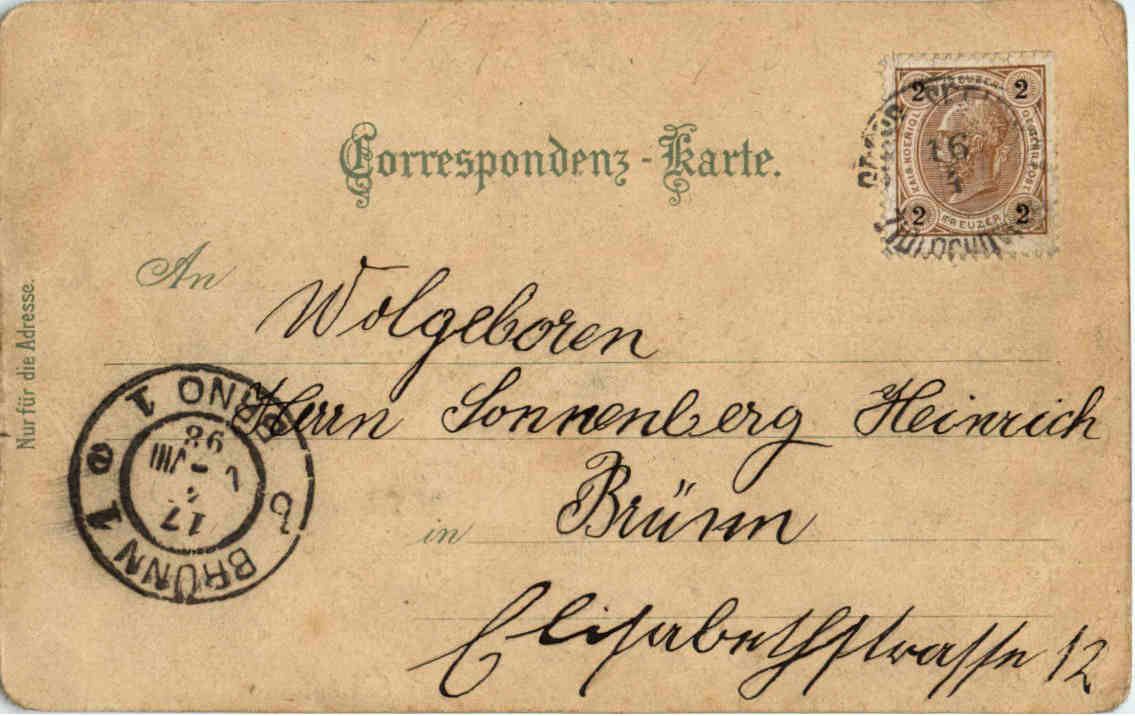 Correspondenz-Karte.
2 KREUZER 2
KAIS. KOENIGL. OESTERR. POST
16
2 KREUZER 2
An
Wolgeboren
Herrn Sonnenberg Heinrich
in Brünn
Elisabethstrasse 12
Nur für die Adresse.
BRNO 1
98
VIII
17
BRÜNN 1